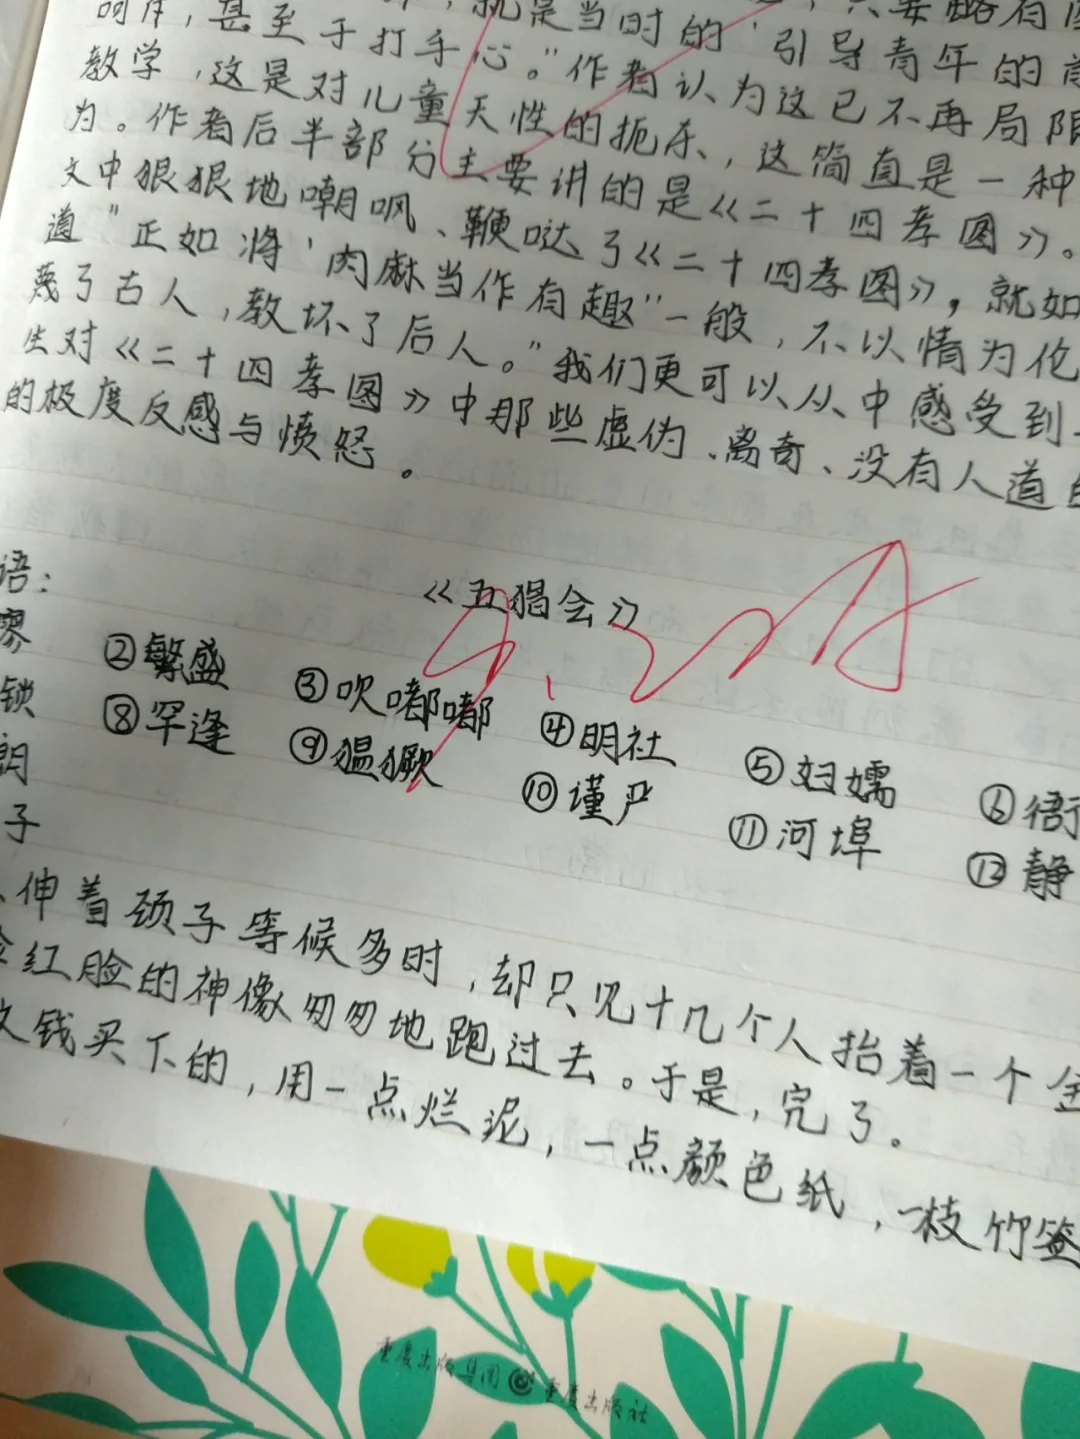 呵斥，甚至于打手心。"作者认为这已不再局限
就是当时的'引导青年的
教学，这是对儿童天性的扼杀，这简直是一种
为。作者后半部分主要讲的是《二十四孝图》。
文中狠狠地嘲呗、鞭哒了《二十四孝图》，就如
道"正如将'肉麻当作有趣"一般，不以情为伦
蔑了古人，教坏了后人。"我们更可以从中感受到
生对《二十四孝图》中那些虚伪、离奇、没有人道
的极度反感与愤怒。
语：
《五猖会》
②繁盛 ③吹嘟嘟 ④明社 ⑤妇孺 ⑥
锁 ⑧罕逢 ⑨猖獗 ⑩谨严 ⑪河埠 ⑫静
朗
子
伸着颈子等候多时，却只见十几个人抬着一个金
红脸的神像匆匆地跑过去。于是，完了。
文钱买下的，用一点烂泥，一点颜色纸，一枝竹签
重庆出版集团 重庆出版社